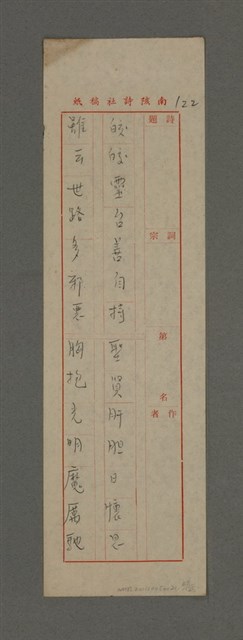 南陔詩社稿紙
122
詩題
詞宗
第　名
作者
皎皎靈台善自持聖賢肝胆日懷思
雖云世路多邪惡胸抱光明魔厲馳